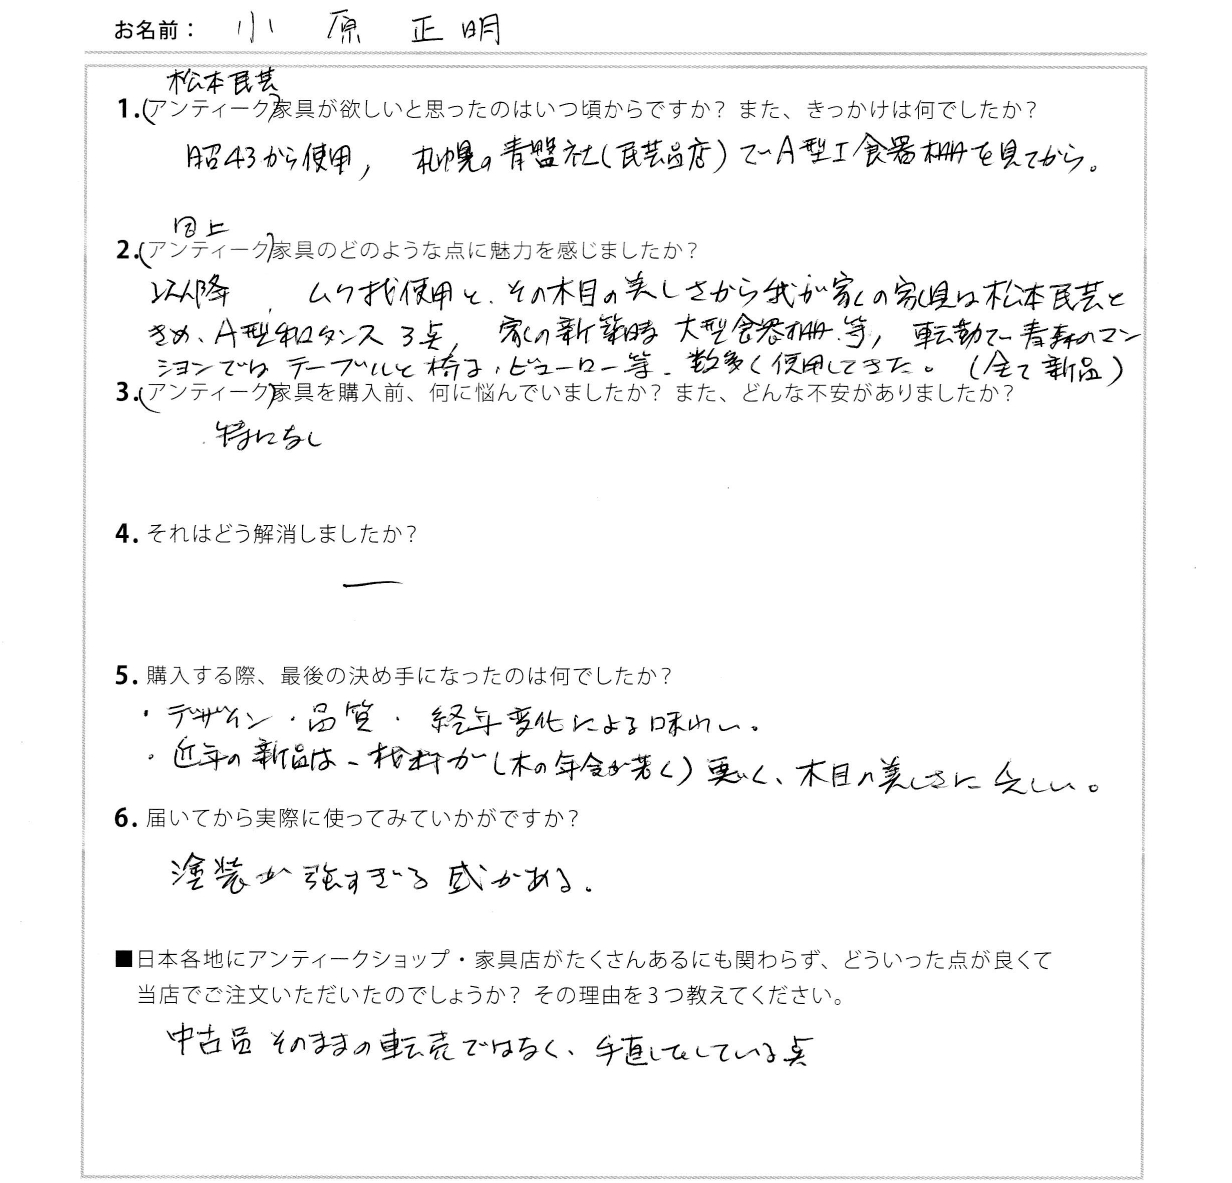 お名前： 小原 正明
松本民芸
1.(アンティーク)家具が欲しいと思ったのはいつ頃からですか？ また、きっかけは何でしたか？
昭43から使用, 札幌の青盤社(民芸品店)でA型I食器棚を見てから。
同上
2.(アンティーク)家具のどのような点に魅力を感じましたか？
以降、ムク材使用と、その木目の美しさから我が家の家具は松本民芸と
きめ、A型和タンス3点, 家の新築時 大型食器棚等, 転勤で青森のマン
ションでは テーブルと椅子、ビューロー等、数多く使用してきた。(全て新品)
3.(アンティーク)家具を購入前、何に悩んでいましたか？ また、どんな不安がありましたか？
特になし
4. それはどう解消しましたか？
—
5. 購入する際、最後の決め手になったのは何でしたか？
・デザイン・品質・経年変化による味わい。
・近年の新品は、材料が(木の年令が若く)悪く、木目の美しさに欠しい。
6. 届いてから実際に使ってみていかがですか？
塗装が強すぎる感がある。
■日本各地にアンティークショップ・家具店がたくさんあるにも関わらず、どういった点が良くて
当店でご注文いただいたのでしょうか？ その理由を３つ教えてください。
中古品そのままの転売ではなく、手直しをしている点